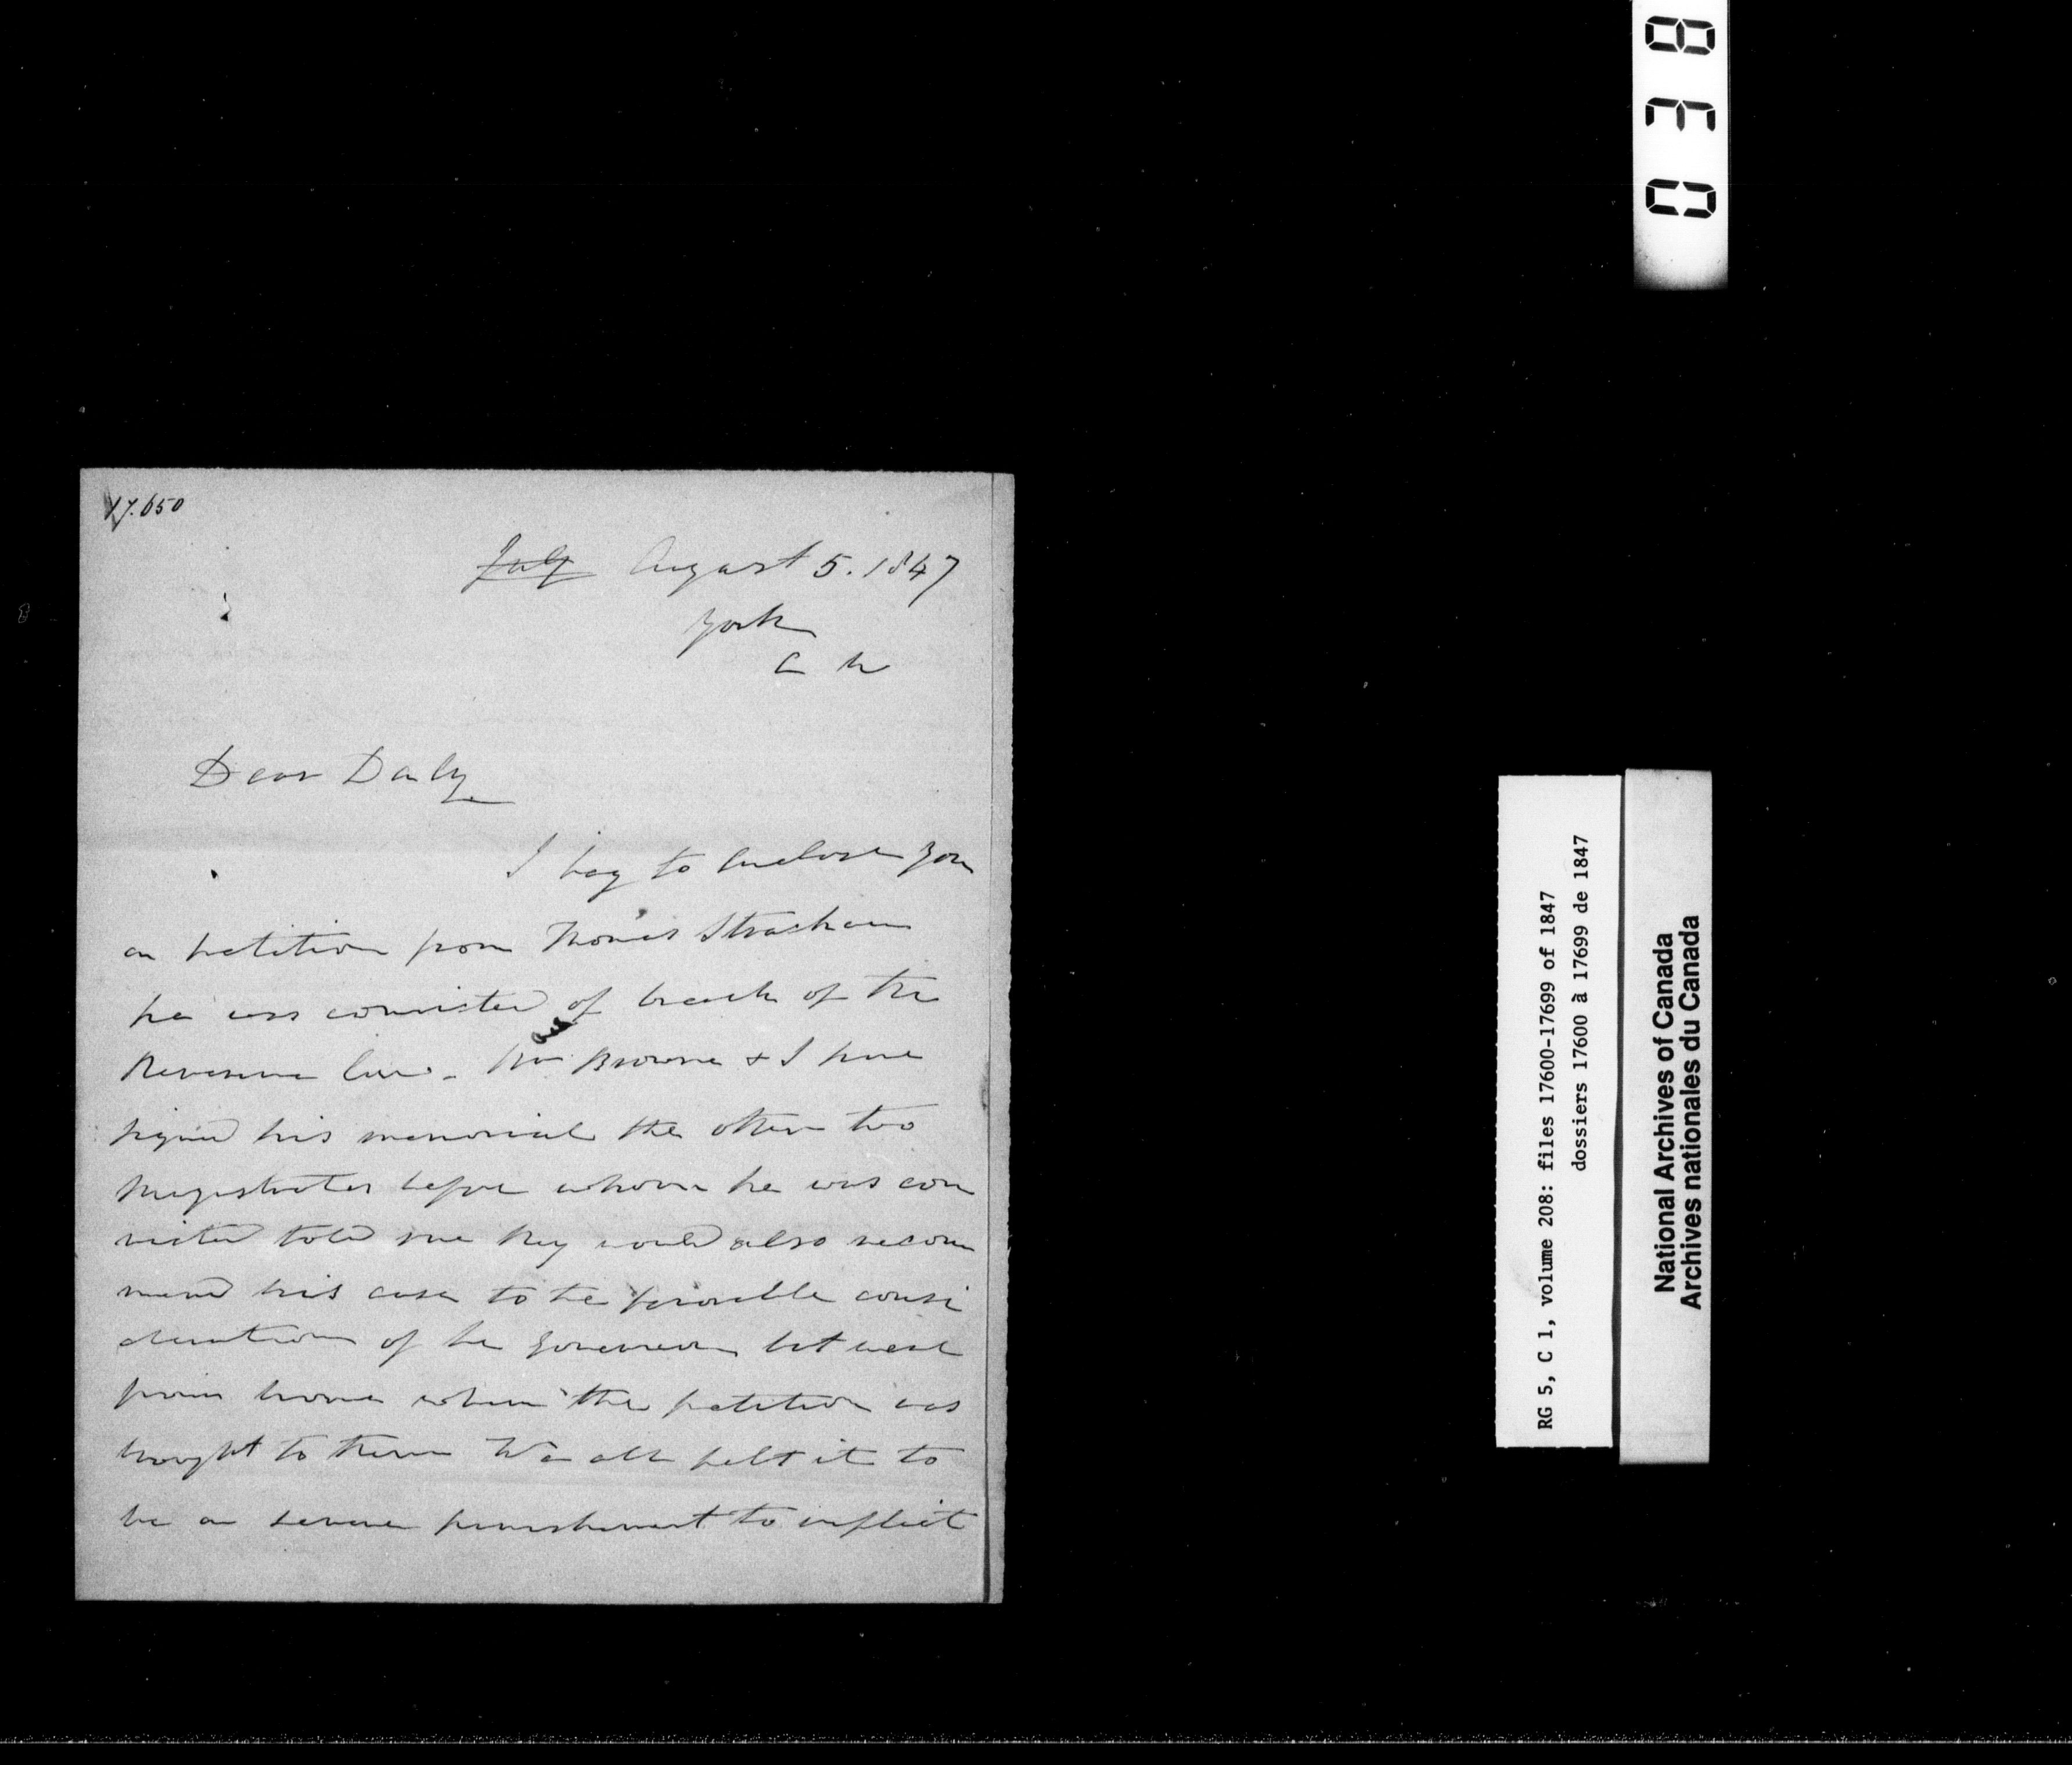 17.650
July August 5. 1847
York
C W
Dear Daly
I beg to Enclose you
a petition from Thomas Strachan
he was convicted of breach of the
Revenue law. Mr Browne & I have
signed his memorial the other two
Magistrates before whom he was con
victed told me they would also recom
mend his case to the favorable consi
deration of the Governor but were
from home when the petition was
brought to them We all felt it to
be a severe punishment to inflict
0 3 8
RG 5, C 1, volume 208: files 17600-17699 of 1847
dossiers 17600 à 17699 de 1847
National Archives of Canada
Archives nationales du Canada